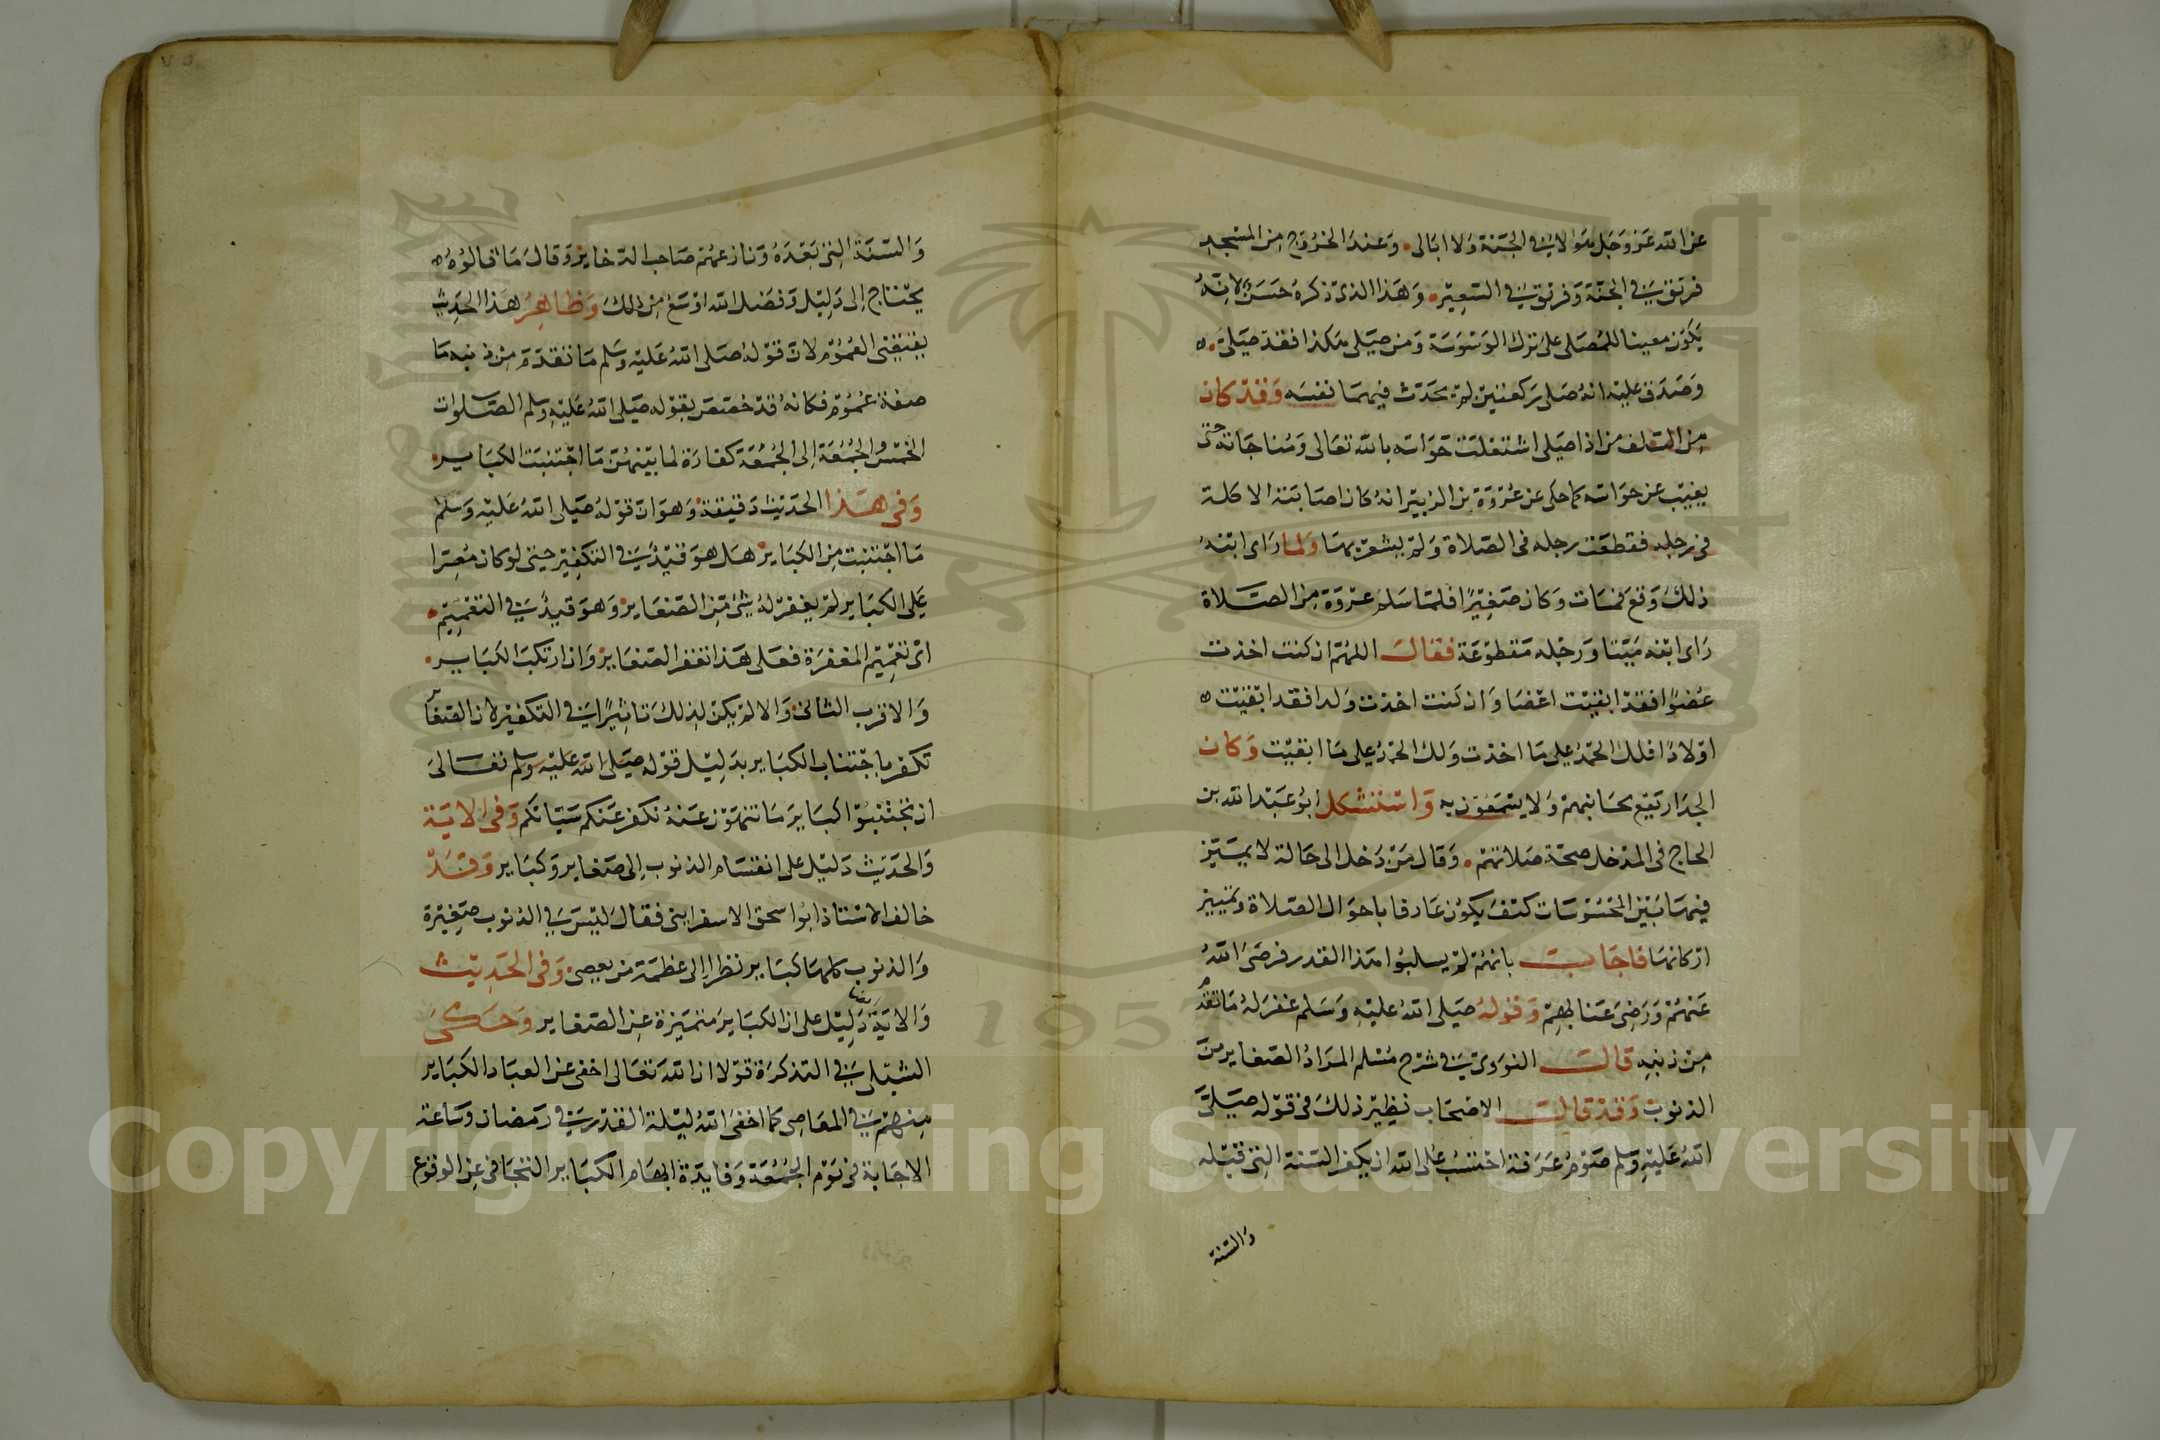 عن الله عز وجل هؤلاء في الجنة ولا ابالي. وعند الخروج من المسجد
فريق في الجنة وفريق في السعير. وهذا الذي ذكره حسن لانه
يكون معينا للمصلي على ترك الوسوسة ومن صلى هكذا فقد صلى. ه
وصدق عليه انه صلى ركعتين لم يحدث فيهما نفسه وقد كان
من السلف من اذا صلى اشتغلت حواسه بالله تعالى ومناجاته حتى
يغيب عن حواسه كما حكى عن عروة بن الزبير انه كان اصابته الاكلة
في رجله فقطعت رجله في الصلاة ولم يشعر بها ولما راى ابنه
ذلك وقع فمات وكان صغيرا فلما سلم عروة من الصلاة
راى ابنه ميتا ورجله مقطوعة فقال اللهم ان كنت اخذت
عضوا فقد ابقيت اعضا وان كنت اخذت ولدا فقد ابقيت ه
اولادا فلك الحمد على ما اخذت ولك الحمد على ما ابقيت وكان
الجدار يقع بجانبهم ولا يسمعون به واستشكل ابو عبد الله بن
الحاج في المدخل صحة صلاتهم. وقال من دخل الى حالة لا يميز
فيها بين المحسوسات كيف يكون عارفا باحوال الصلاة وتمييز
اركانها فاجاب بانهم لم يسلبوا هذا القدر فرضي الله
عنهم ورضي عنا بهم وقوله صلى الله عليه وسلم غفر له ما تقدم
من ذنبه قال النووي في شرح مسلم المراد الصغاير من
الذنوب وقد قال الاصحاب نظير ذلك في قوله صلى
الله عليه وسلم صوم عرفة احتسب على الله ان يكفر السنة التي قبله
والسنة
والسنة التي بعده ونازعهم صاحب الذخاير وقال ما قالوه ه
يحتاج الى دليل وفضل الله اوسع من ذلك وظاهر هذا الحديث
يقتضي العموم لان قوله صلى الله عليه وسلم ما تقدم من ذنبه ما
صفة عموم فكانه قد خصص بقوله صلى الله عليه وسلم الصلوات
الخمس والجمعة الى الجمعة كفارة لما بينهن ما اجتنبت الكباير.
وفي هذا الحديث دقيقة وهو ان قوله صلى الله عليه وسلم
ما اجتنبت من الكباير هل هو قيد في التكفير حتى لو كان مصرا
على الكباير لم يغفر له شئ من الصغاير وهو قيد في التعميم.
اي تعميم المغفرة فعلى هذا تغفر الصغاير وان ارتكب الكباير.
والاقرب الثاني والا لم يكن لذلك تاثيرا في التكفير لان الصغاير
تكفر باجتناب الكباير بدليل قوله صلى الله عليه وسلم تعالى
ان تجتنبوا كباير ما تنهون عنه نكفر عنكم سيئاتكم وفي الاية
والحديث دليل على انقسام الذنوب الى صغاير وكباير وقد
خالف الاستاذ ابو اسحق الاسفرايني فقال ليس في الذنوب صغيرة
والذنوب كلها كباير نظرا الى عظمة من يعصى وفي الحديث
والاية ايضا دليل على ان الكباير متميزة عن الصغاير وحكى
الشبلي في التذكرة قولا ان الله تعالى اخفى عن العباد الكباير
منهم في المعاصي كما اخفى الله ليلة القدر في رمضان وساعة
الاجابة في يوم الجمعة وفايدة ابهام الكباير التجافي عن الوقوع
Copyright © King Saud University
1957